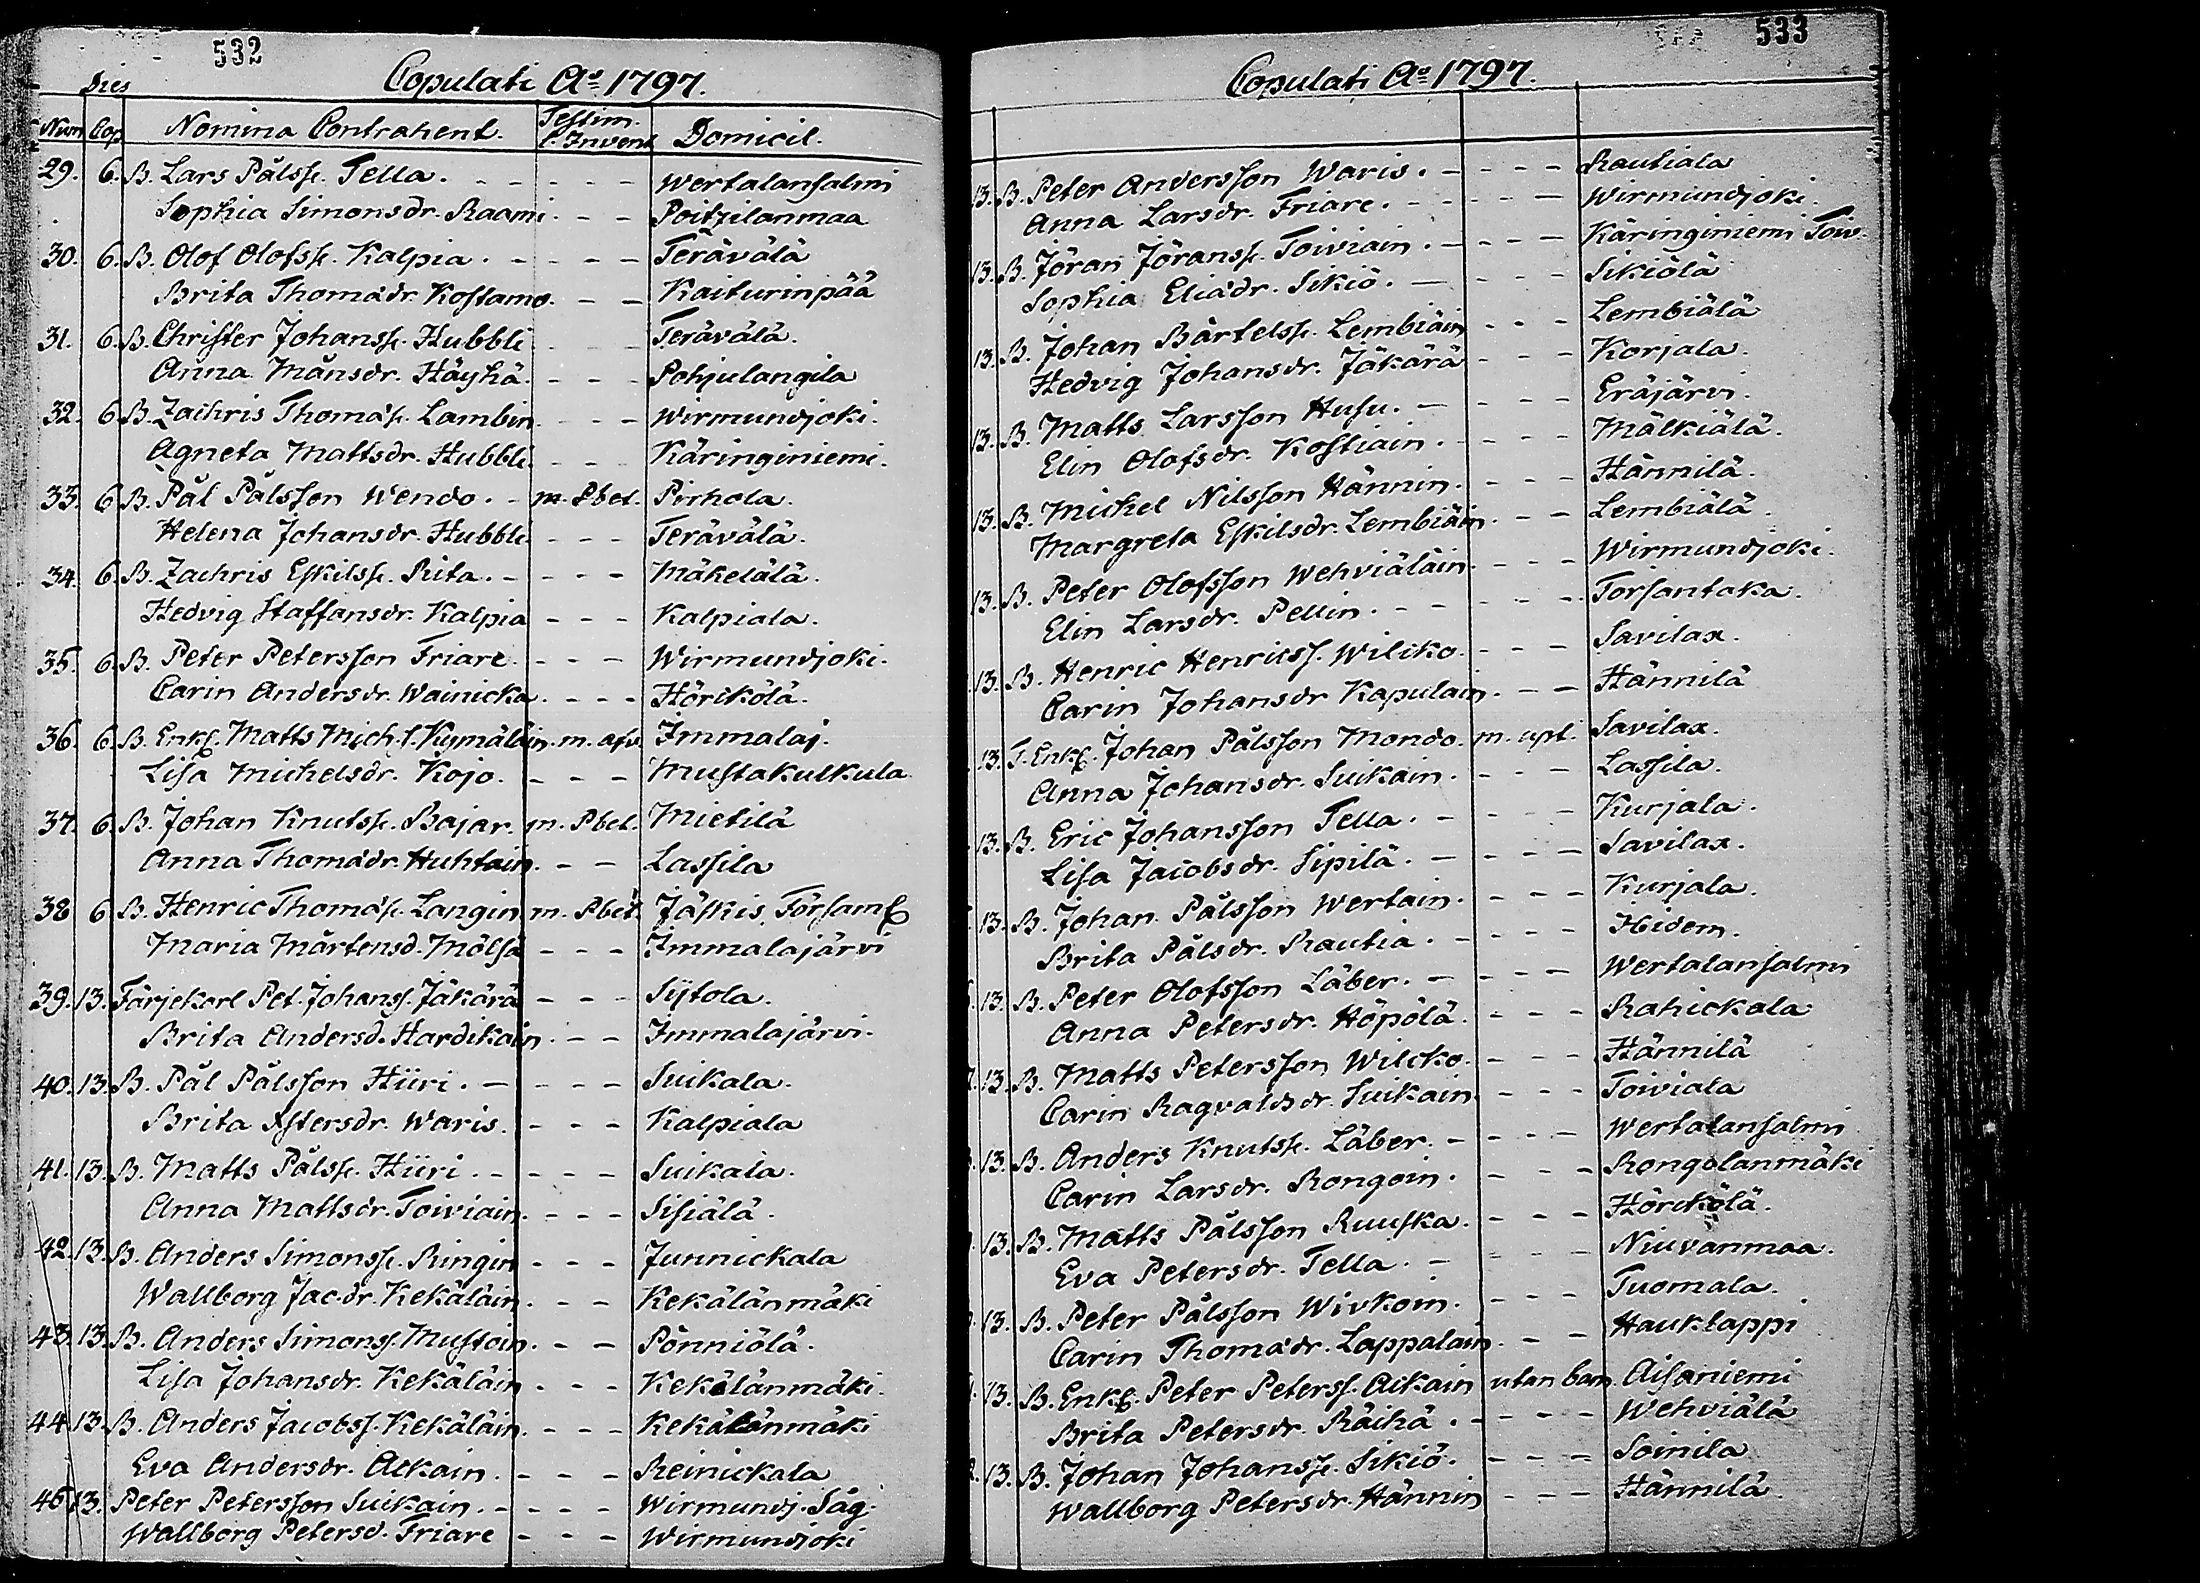 532
Copulati Aº 1797.
Dies
Num Cop Nomina Contrahent. Testim. l. Invent Domicil.
29. 6. B. Lars Pålss. Tella. - - - - - Wertalansalmi
Sophia Simonsdr. Raami. - - Poitzilanmaa
30. 6. B. Olof Olofss. Kalpia. - - - - Terävälä
Brita Thomadr. Kostamo. - - Kaiturinpää
31. 6. B. Christer Johanss. Hubbli - - - Terävälä.
Anna Månsdr. Häyhä. - - - Pohjulangila
32. 6. B. Zachris Thomas. Lambin. - - - Wirmundjoki.
Agneta Mattsdr. Hubbli. - - - Käringiniemi.
33. 6. B. Pål Pålsson Wendo. - m. Pbet. Pirhola.
Helena Johansdr. Hubbli. - - - Terävälä.
34. 6. B. Zachris Eskilss. Rita. - - - - Mäkelälä.
Hedvig Staffansdr. Kalpia - - - Kalpiala.
35. 6. B. Peter Petersson Friare. - - - Wirmundjoki.
Carin Andersdr. Wainicka. - - - Hörickölä.
36. 6. B. Enkl. Matts Mich. s. Kymäläin. m. afv. Immalaj.
Lisa Michelsdr. Kojo. - - - Mustakulkula
37. 6. B. Johan Knutss. Bajar. m. Pbet. Mietilä
Anna Thomadr. Huhtain. - - Lassila
38 6 B. Henric Thomas. Langin m. Pbet. Jäskis Församl
Maria Mårtensd. Mölsä - - - Immalajärvi
39. 13. Färjekarl Pet. Johanss. Jäkärä - - - Sijtola.
Brita Andersd. Hardikain. - - Immalajärvi.
40. 13. B. Pål Pålsson Hiiri. - - - - Suikala.
Brita Istersdr. Waris. - - - Kalpiala
41. 13. B. Matts Pålss. Hiiri. - - - - - Suikala.
Anna Mattsdr. Toiviain. - - - Sisiälä.
42. 13. B. Anders Simonss. Ringin - - - Junnickala
Wallborg Jac.dr. Kekäläin. - - Kekälänmäki
43. 13. B. Anders Simonss. Mustoin. - - Pönniölä.
Lisa Johansdr. Kekäläin - - - Kekälänmäki.
44. 13. B. Anders Jacobss. Kekäläin. - - - Kekälänmäki
Eva Andersdr. Ackain. - - - Reinickala
45. 13. Peter Petersson Suikain. - - - - Wirmundj. Såg.
Wallborg Petersd. Friare - - - Wirmundjoki
533
Copulati Aº 1797.
13. B. Peter Andersson Waris. - - - - Rautiala
Anna Larsdr. Friare. - - - - - Wirmundjoki.
13. B. Jöran Jöranss. Toiviain. - - - - Käringiniemi Toiv.
Sophia Eliadr. Sikiö. - - - - Sikiölä
13. B. Johan Bärtelss. Lembiäin - - - Lembiälä
Hedvig Johansdr. Jäkärä - - - Korjala.
13. B. Matts Larsson Husu. - - - - Eräjärvi.
Elin Olofsdr. Kostiain. - - - - Mälkiälä.
13. B. Michel Nilsson Hännin. - - - Hännilä.
Margreta Eskilsdr. Lembiäin. - - Lembiälä.
13. B. Peter Olofsson Wehviäläin. - - - Wirmundjoki.
Elin Larsdr. Pellin. - - - - - Torsantaka.
13. B. Henric Henricss. Wilcko. - - - Savilax.
Carin Johansdr Kapulain. - - Hännilä
13. T. Enkl. Johan Pålsson Mondo. m. upt. Savilax.
Anna Johansdr. Suikain. - - - Lassila.
13. B. Eric Johansson Tella. - - - - Kurjala.
Lisa Jacobsdr. Sipilä. - - - - Savilax.
13. B. Johan Pålsson Wertain. - - - Kurjala.
Brita Pålsdr. Rautia. - - - - Hidem.
13. B. Peter Olofsson Läber. - - - - Wertalansalmi
Anna Petersdr. Höpölä. - - - Rahickala
13. B. Matts Petersson Wilcko. - - - Hännilä
Carin Ragvaldsdr. Suikain. - - - Toiviala
13. B. Anders Knutss. Läber. - - - - Wertalansalmi
Carin Larsdr. Rongoin. - - - Rongolanmäki
13. B. Matts Pålsson Ruuska. - - - Hörickölä.
Eva Petersdr. Tella. - - - - Niuvanmaa.
13. B. Peter Pålsson Wivkoin. - - - Tuomala.
Carin Thomadr. Lappalain. - - Hauklappi
13. B. Enkl. Peter Peterss. Aikain utan barn Aisaniemi
Brita Petersdr. Räihä. - - - - Wehviälä
13. B. Johan Johanss. Sikiö. - - - Soinila
Wallborg Petersdr. Hännin - - - Hännilä